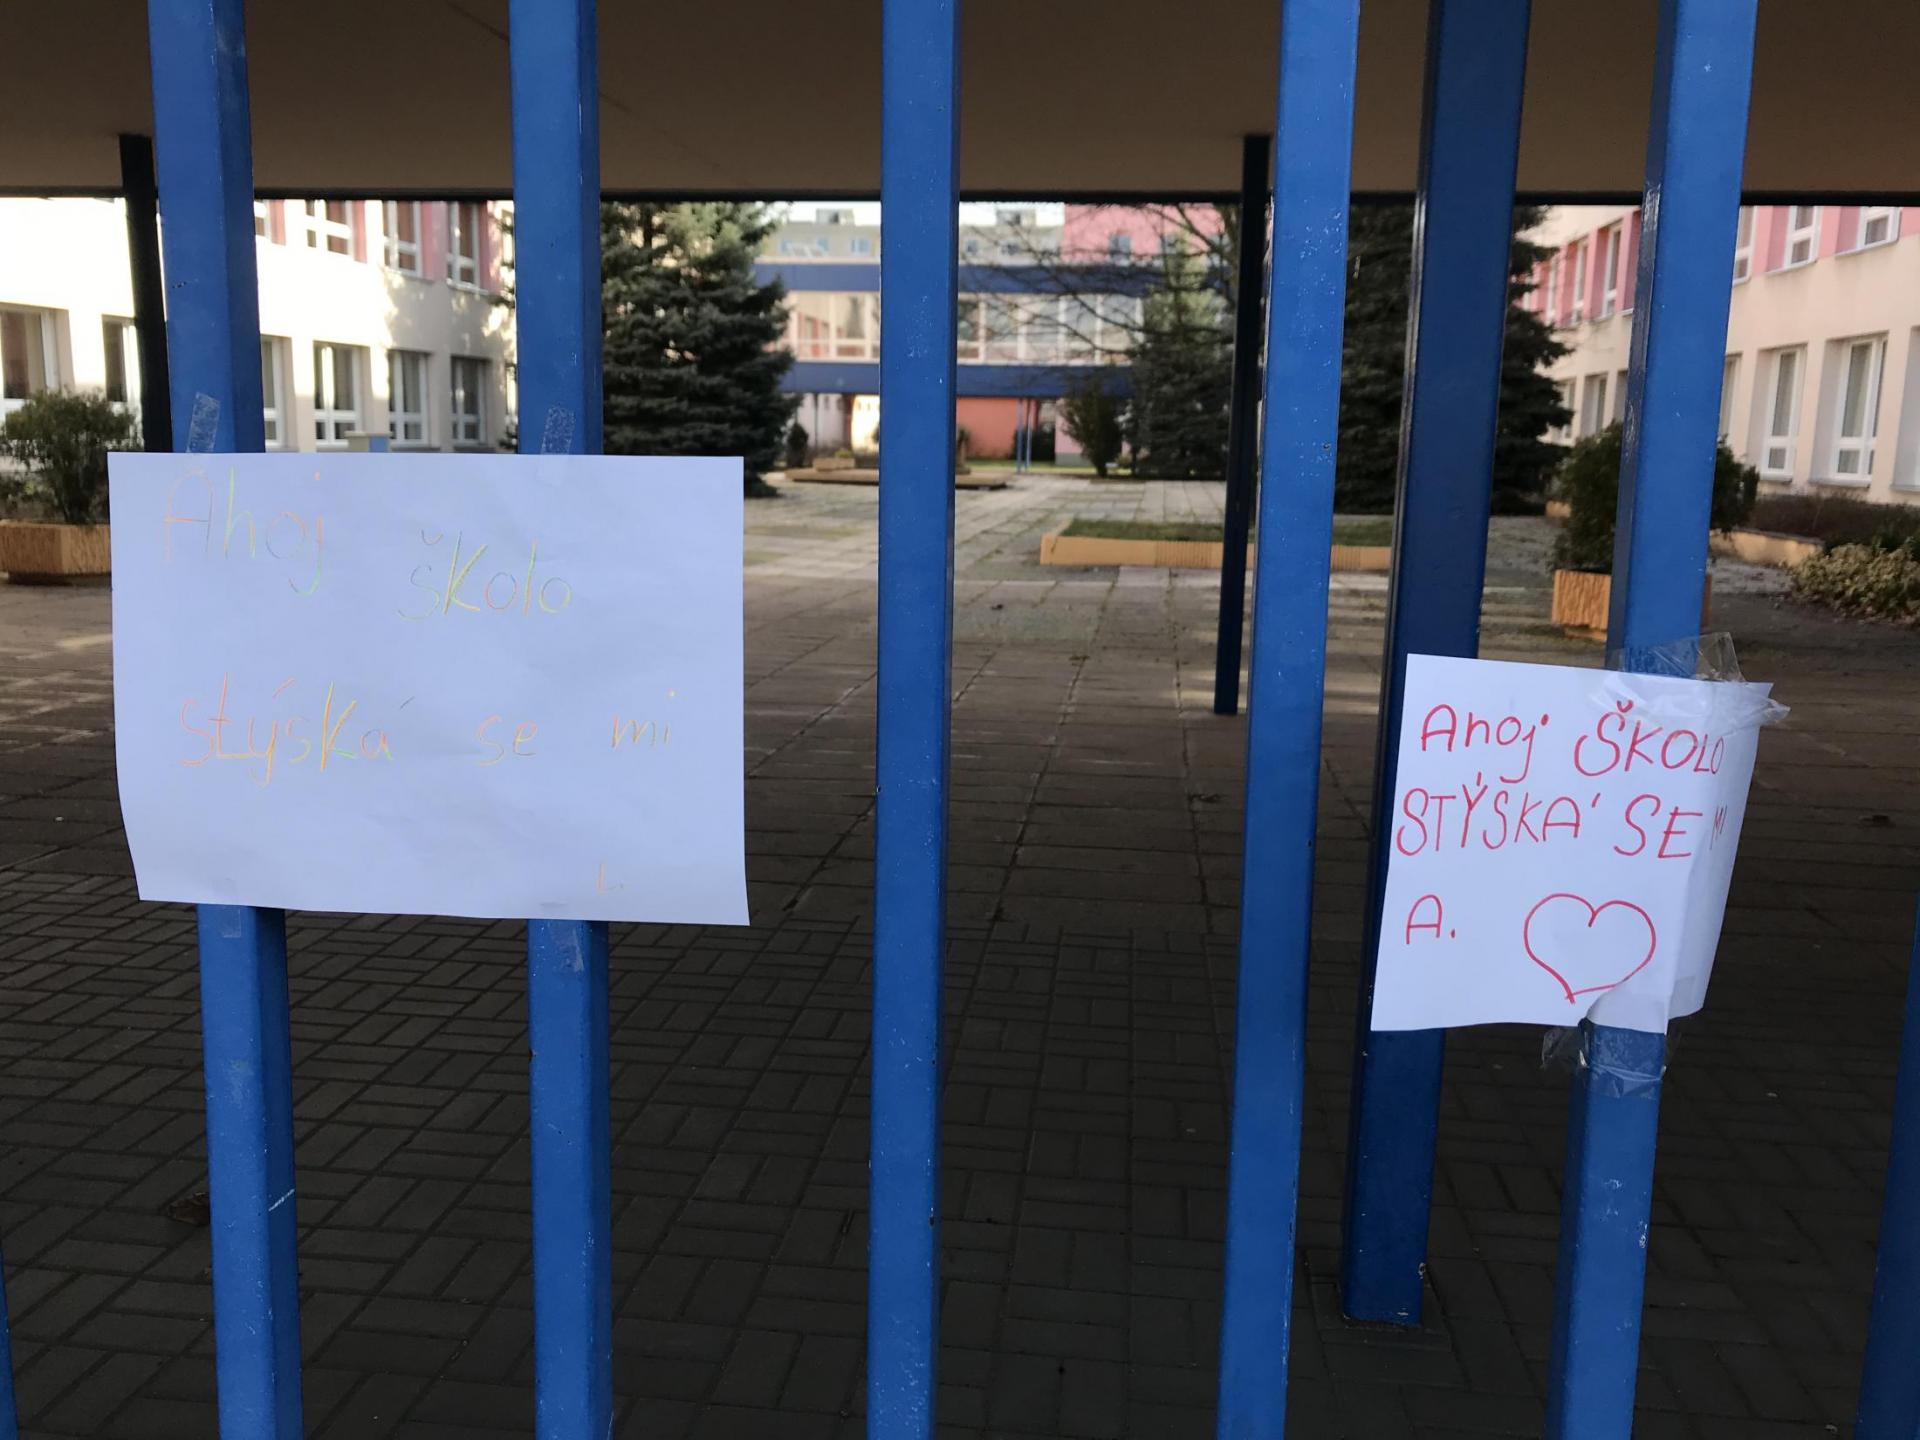 Ahoj
škola
stýská se mi
L.
Ahoj ŠKOLO
STÝSKÁ SE MI
A.